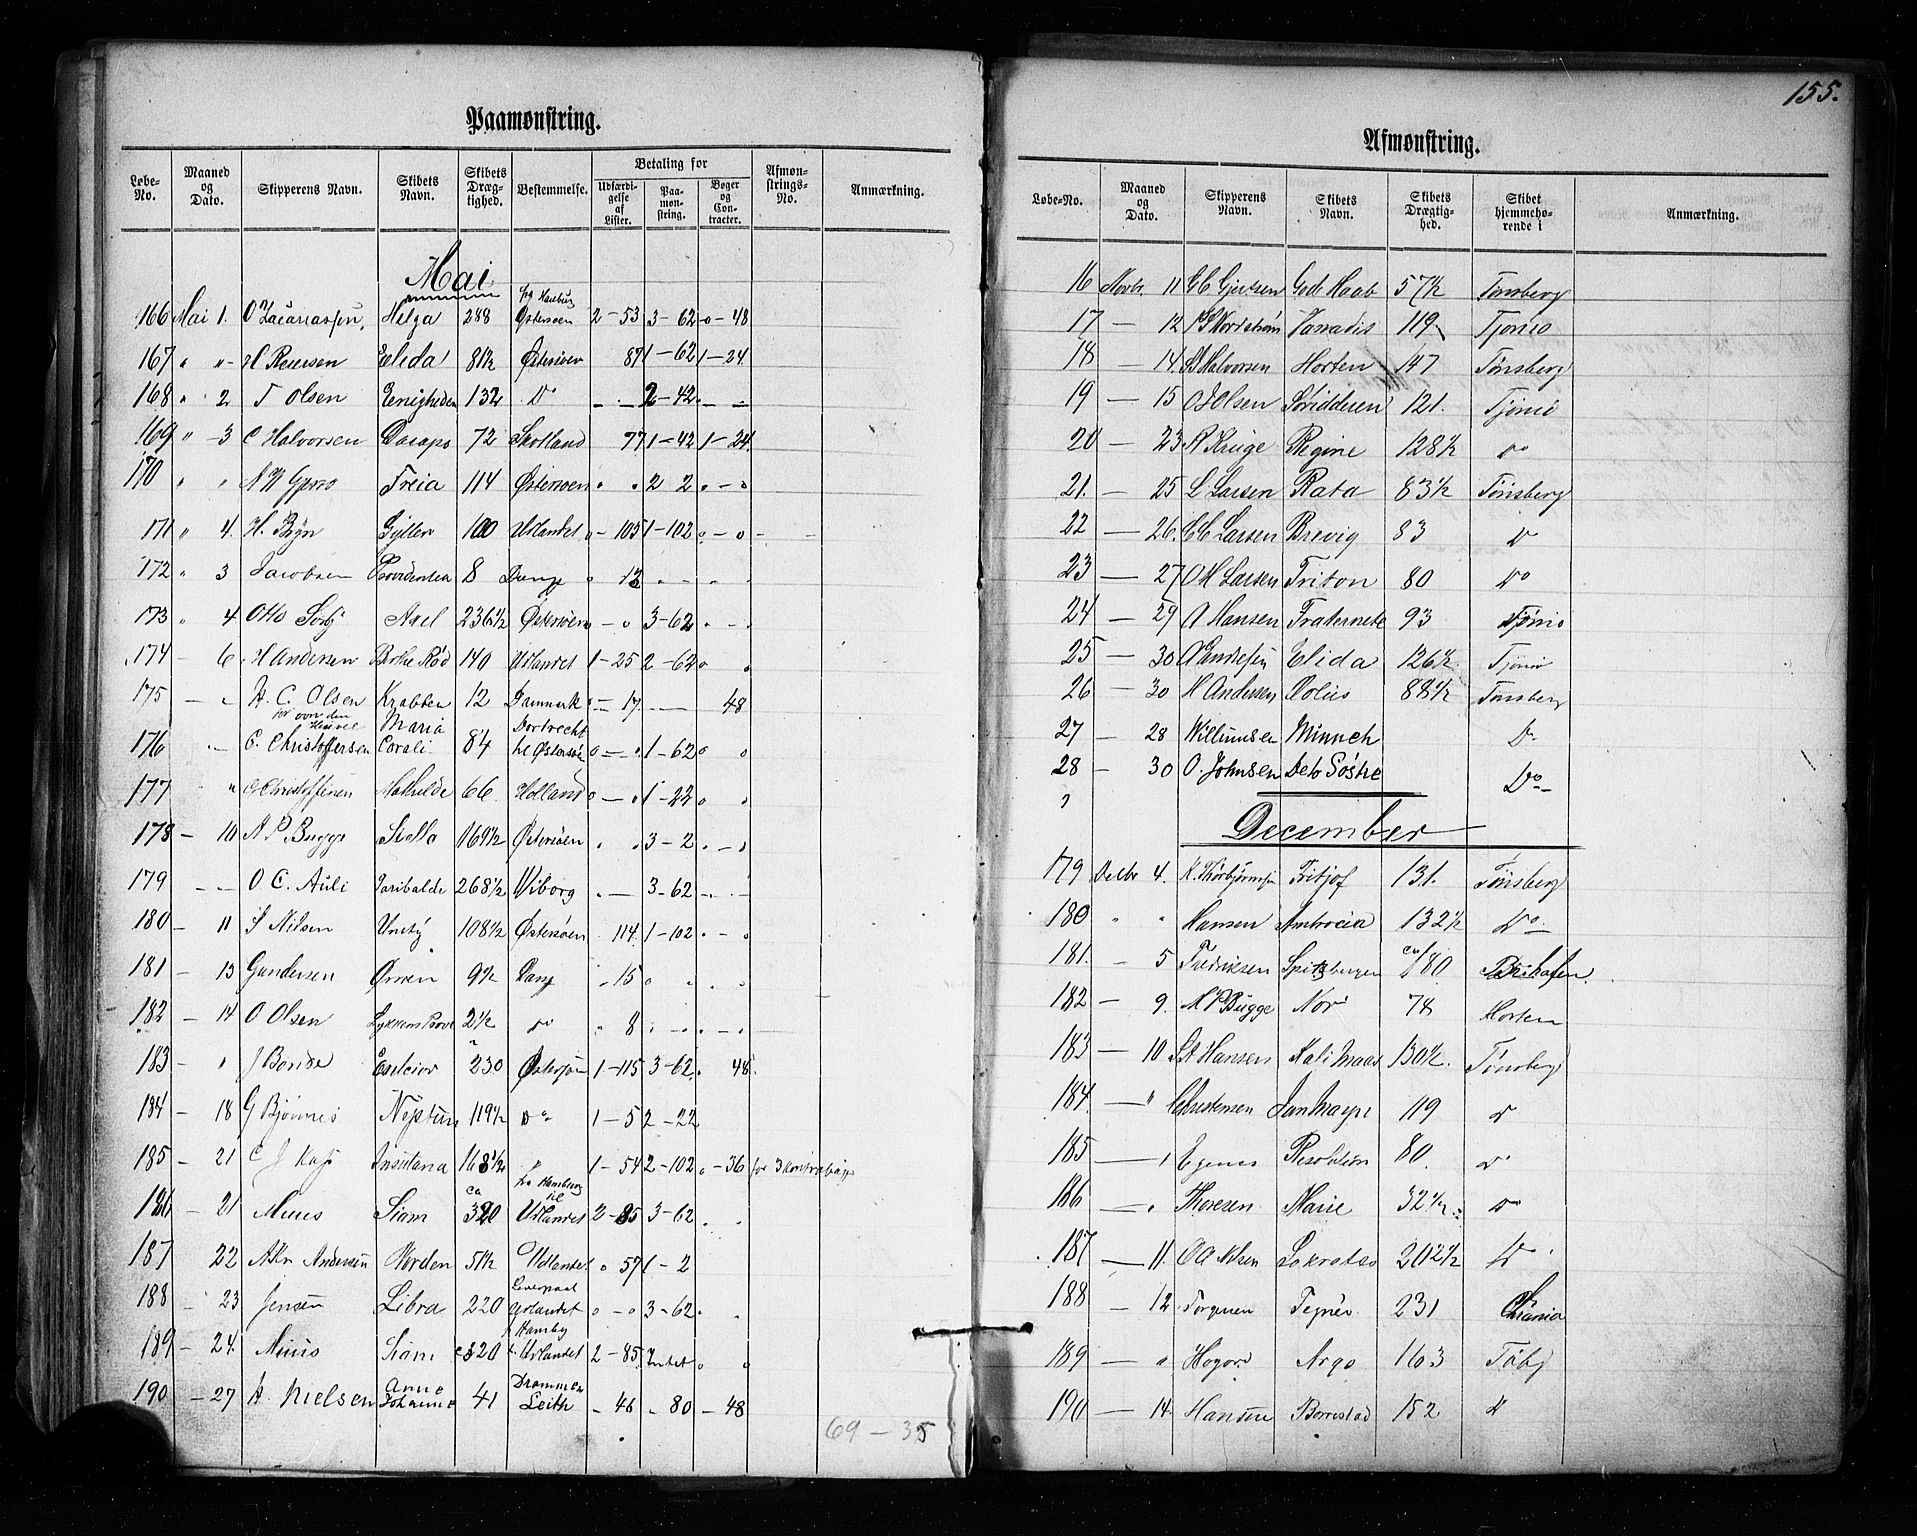 Paamønstring.
Løbe-No. Maaned og Dato. Skipperens Navn. Skibets Navn. Skibets Dræg-tighed. Bestemmelse. Betaling for Udfærdi-gelse af Lister. Paa-møn-string. Bøger og Con-tracter. Afmøn-strings-No. Anmærkning.
Mai
166 Mai 1. O Zacariassen, Helga 288 fra Hamburg Østersøen 2-53 3-62 0-48
167 " " H Petersen Elida 81½ Østersøen 87 1-62 1-24
168 " 2 T Olsen Enigheden 132 Do 2-42
169 " 3 C Halvorsen 72 Skotland 77 1-42 1-24
170 " " Freia 114 Østersøen 2 2
171 " 4. H. Bryn Gyller 100 Udlandet 0-105 1-102 0-0
172 " 3 Jacobsen Providentia 8 12
173 " 4 Otto Axel 236½ Østersøen 3-62
174 - 6 H Andersen Berthe Rød 140 Udlandet 1-25 2-62 0
175 - " H. C. Olsen Krabben 12 Danmark 17 48
176 C. Christoffersen Maria Corali 84 Dortrecht til Østersøen 0-0 1-62 0
177 " C Christoffersen Mathilde 66 Holland 0-0 1-22 0
178 - 10 A P Bugge Stella 169½ Østersøen 3-2
179 - - O. C. Auli Garibalde 268½ Wiborg 3-62
180 - 11 S Nilsen Unity 108½ Østersøen 114 1-102
181 - 13 Gundersen Ørnen 9½ 15
182 - 14 O Olsen Lykkens Prøve 2½ Do 8
183 - " J Bonde Exelcior 230 Østersøen 1-115 3-62 48
184 - 18 G Bjønnes Neptun 119½ Do 1-5 2-22
185 - 21 C J Insulana 168½ " 1-54 2-102 0-36 for 3 kontrabøger
186 - 21 Muus Siam ca 320 fra Hamburg til Udlandet 2-85 3-62
187 - 22 Andersen Norden 51½ Udlandet 57 1-2
188 - 23 Jensen Libra 220 Liverpool Udlandet 0-0 3-62
189 - 24. Muus Siam c 320 f Hamby t. Udlandet 2-85 Intet 0
190 - 27 H. Nielsen Anne Johanne 41 Drammen Leith - 46 - 80 - 48
69-35
155.
Afmønstring.
Løbe-No. Maaned og Dato. Skipperens Navn. Skibets Navn. Skibets Drægtig-hed. Skibet hjemmehø-rende i Anmærkning.
16 Novb. 11 Gjertsen Gode Haab 57½ Tønsberg
17 — 12 Nordstrøm Vanadis 119 Tjømø
18 — 14. Halvorsen Horten 147 Tønsberg
19 — 15 O J Olsen Stridderen 121. Tjømø
20 — 23 A Kruge Regine 128½ Do
21. — 25 L Larsen Rata 83½ Tønsberg
22 — 26. C C Larsen Brevig 83 Do
23 — 27 O H Larsen Triton 80 Do
24 — 29 A Hansen Fraternete 93 Tjømø
25 — 30 Elida 126½ Tjømø
26 — 30 H Andersen Eolus 88½ Tønsberg
27 — 28 Willumsen Münnch Do
28 — 30 O. Johnsen Deto Søstre Do
December
179 Decbr 4. K. Thorbjørnsen Fritjof 131. Tønsberg
180 " " Hansen Ambrocia 132½ Do
181. — 5 Fredriksen Spitzbergen ca 180
182 — 9. A P Bugge Nor 78 Horten
183 — 10 Hansen Kali Maas 130½. Tønsberg
184. — " Christensen Jan Mayn 119 Do
185 — " Egenes Resolution 80. Do
186 — " Thoresen Marie 32½ Do
187 — 11. O A Nilsen Sokrates 202½ Do
188 — 12 Torgersen Tegner 231 Chrania
189 — " Hogord Argo 163 Tøbg
190 — 14. Hansen Borrestad 152 Do